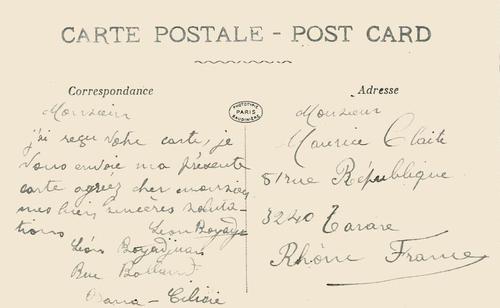 CARTE POSTALE - POST CARD
Correspondance
Monsieur
j'ai reçu votre carte, je
vous envoie ma présente
carte agreez cher monsieur
mes bien sincères saluta-
tions Leon Boyadj
Léon Boyadjian
Rue
Dana - Cilicie
PHOTOTYPIE
PARIS
BAUDINIÈRE
Adresse
Monsieur
Maurice
81 rue République
3240 Tarare
Rhône France